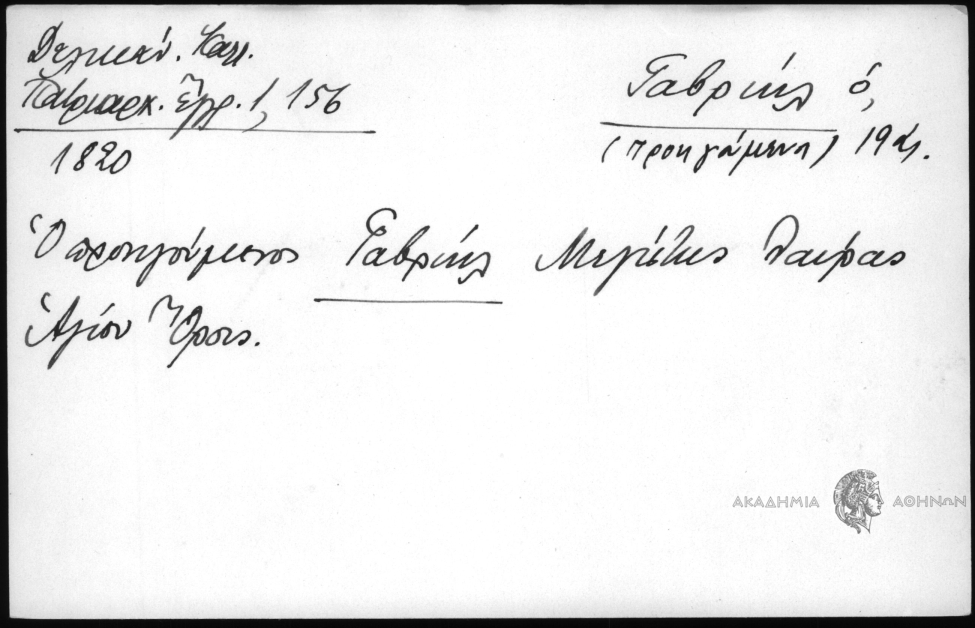 Δελικάν. Καλ.
Πατριαρχ. Ἔγγρ. 1, 156
1820
Γαβριήλ ὁ,
(προηγούμενος) 19 αἰ.
Ὁ προηγούμενος Γαβριήλ Μεγίστης Λαύρας
Ἁγίου Ὄρους.
ΑΚΑΔΗΜΙΑ ΑΘΗΝΩΝ